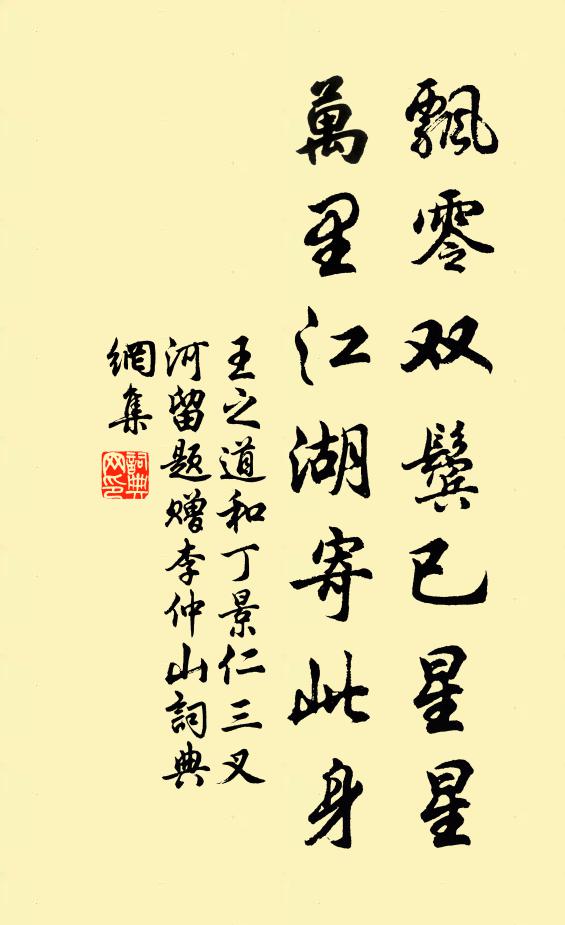 飄零双鬓已星星
萬里江湖寄此身
王之道和丁景仁三叉
河留题赠李仲山詞典
網集
詞典網印